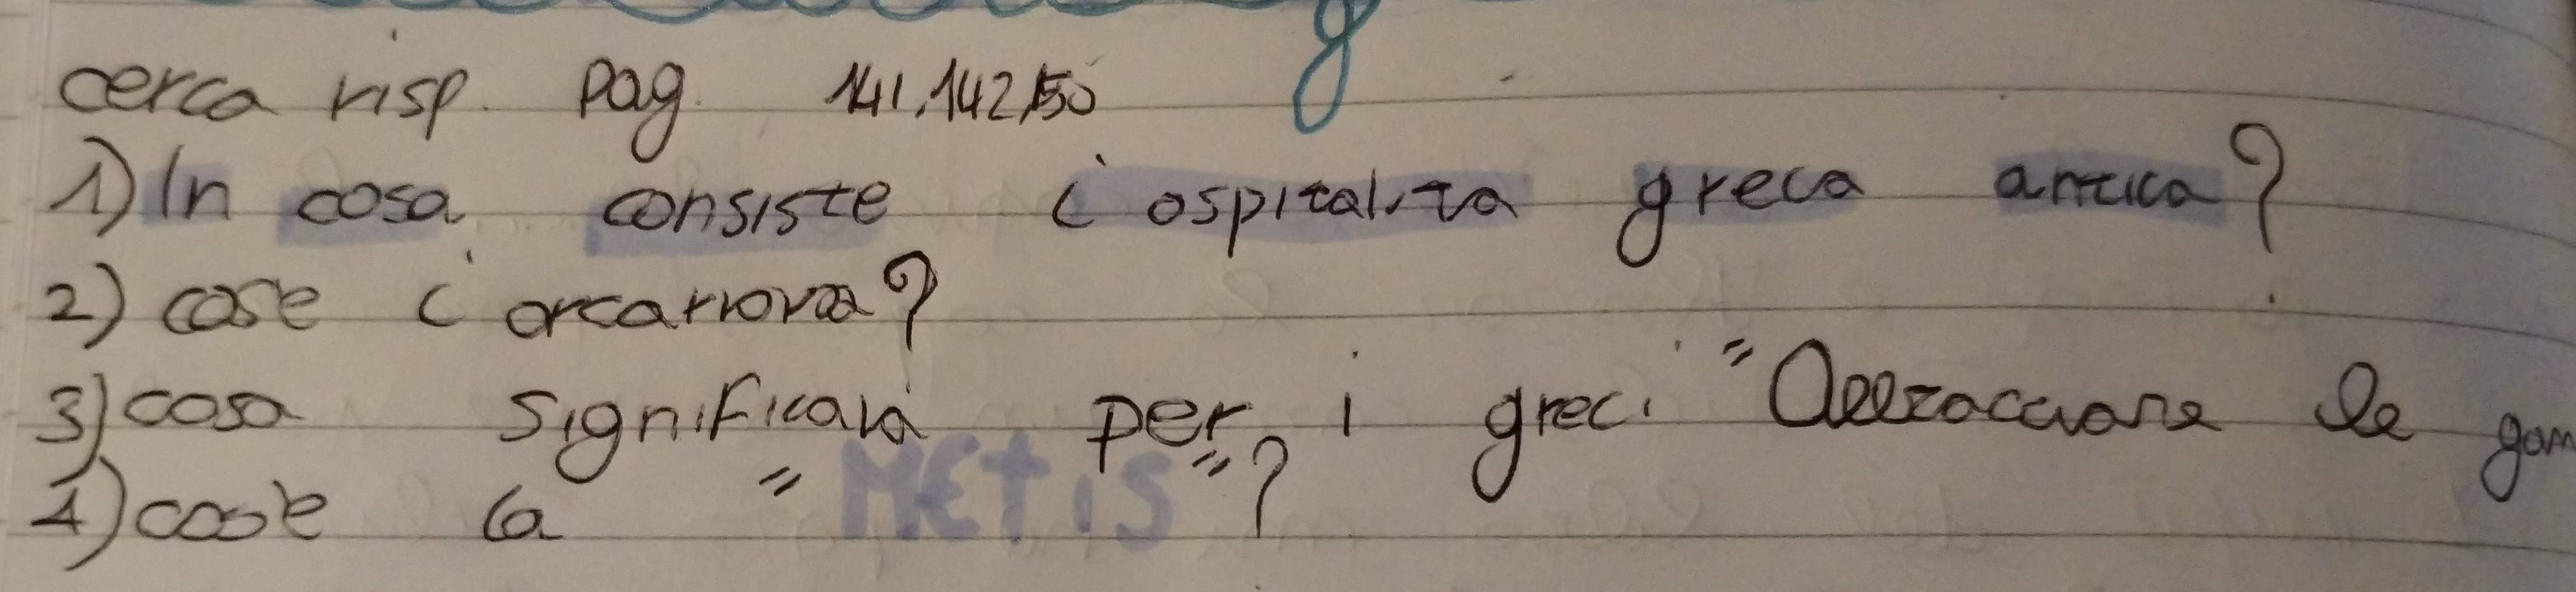 cerca risp. pag. 141,142,150
1) In cosa consiste l'ospitalità greca antica?
2) cos'è l'
3) cosa significava per i greci "Abbracciare le
4) cos'è la "METIS"?